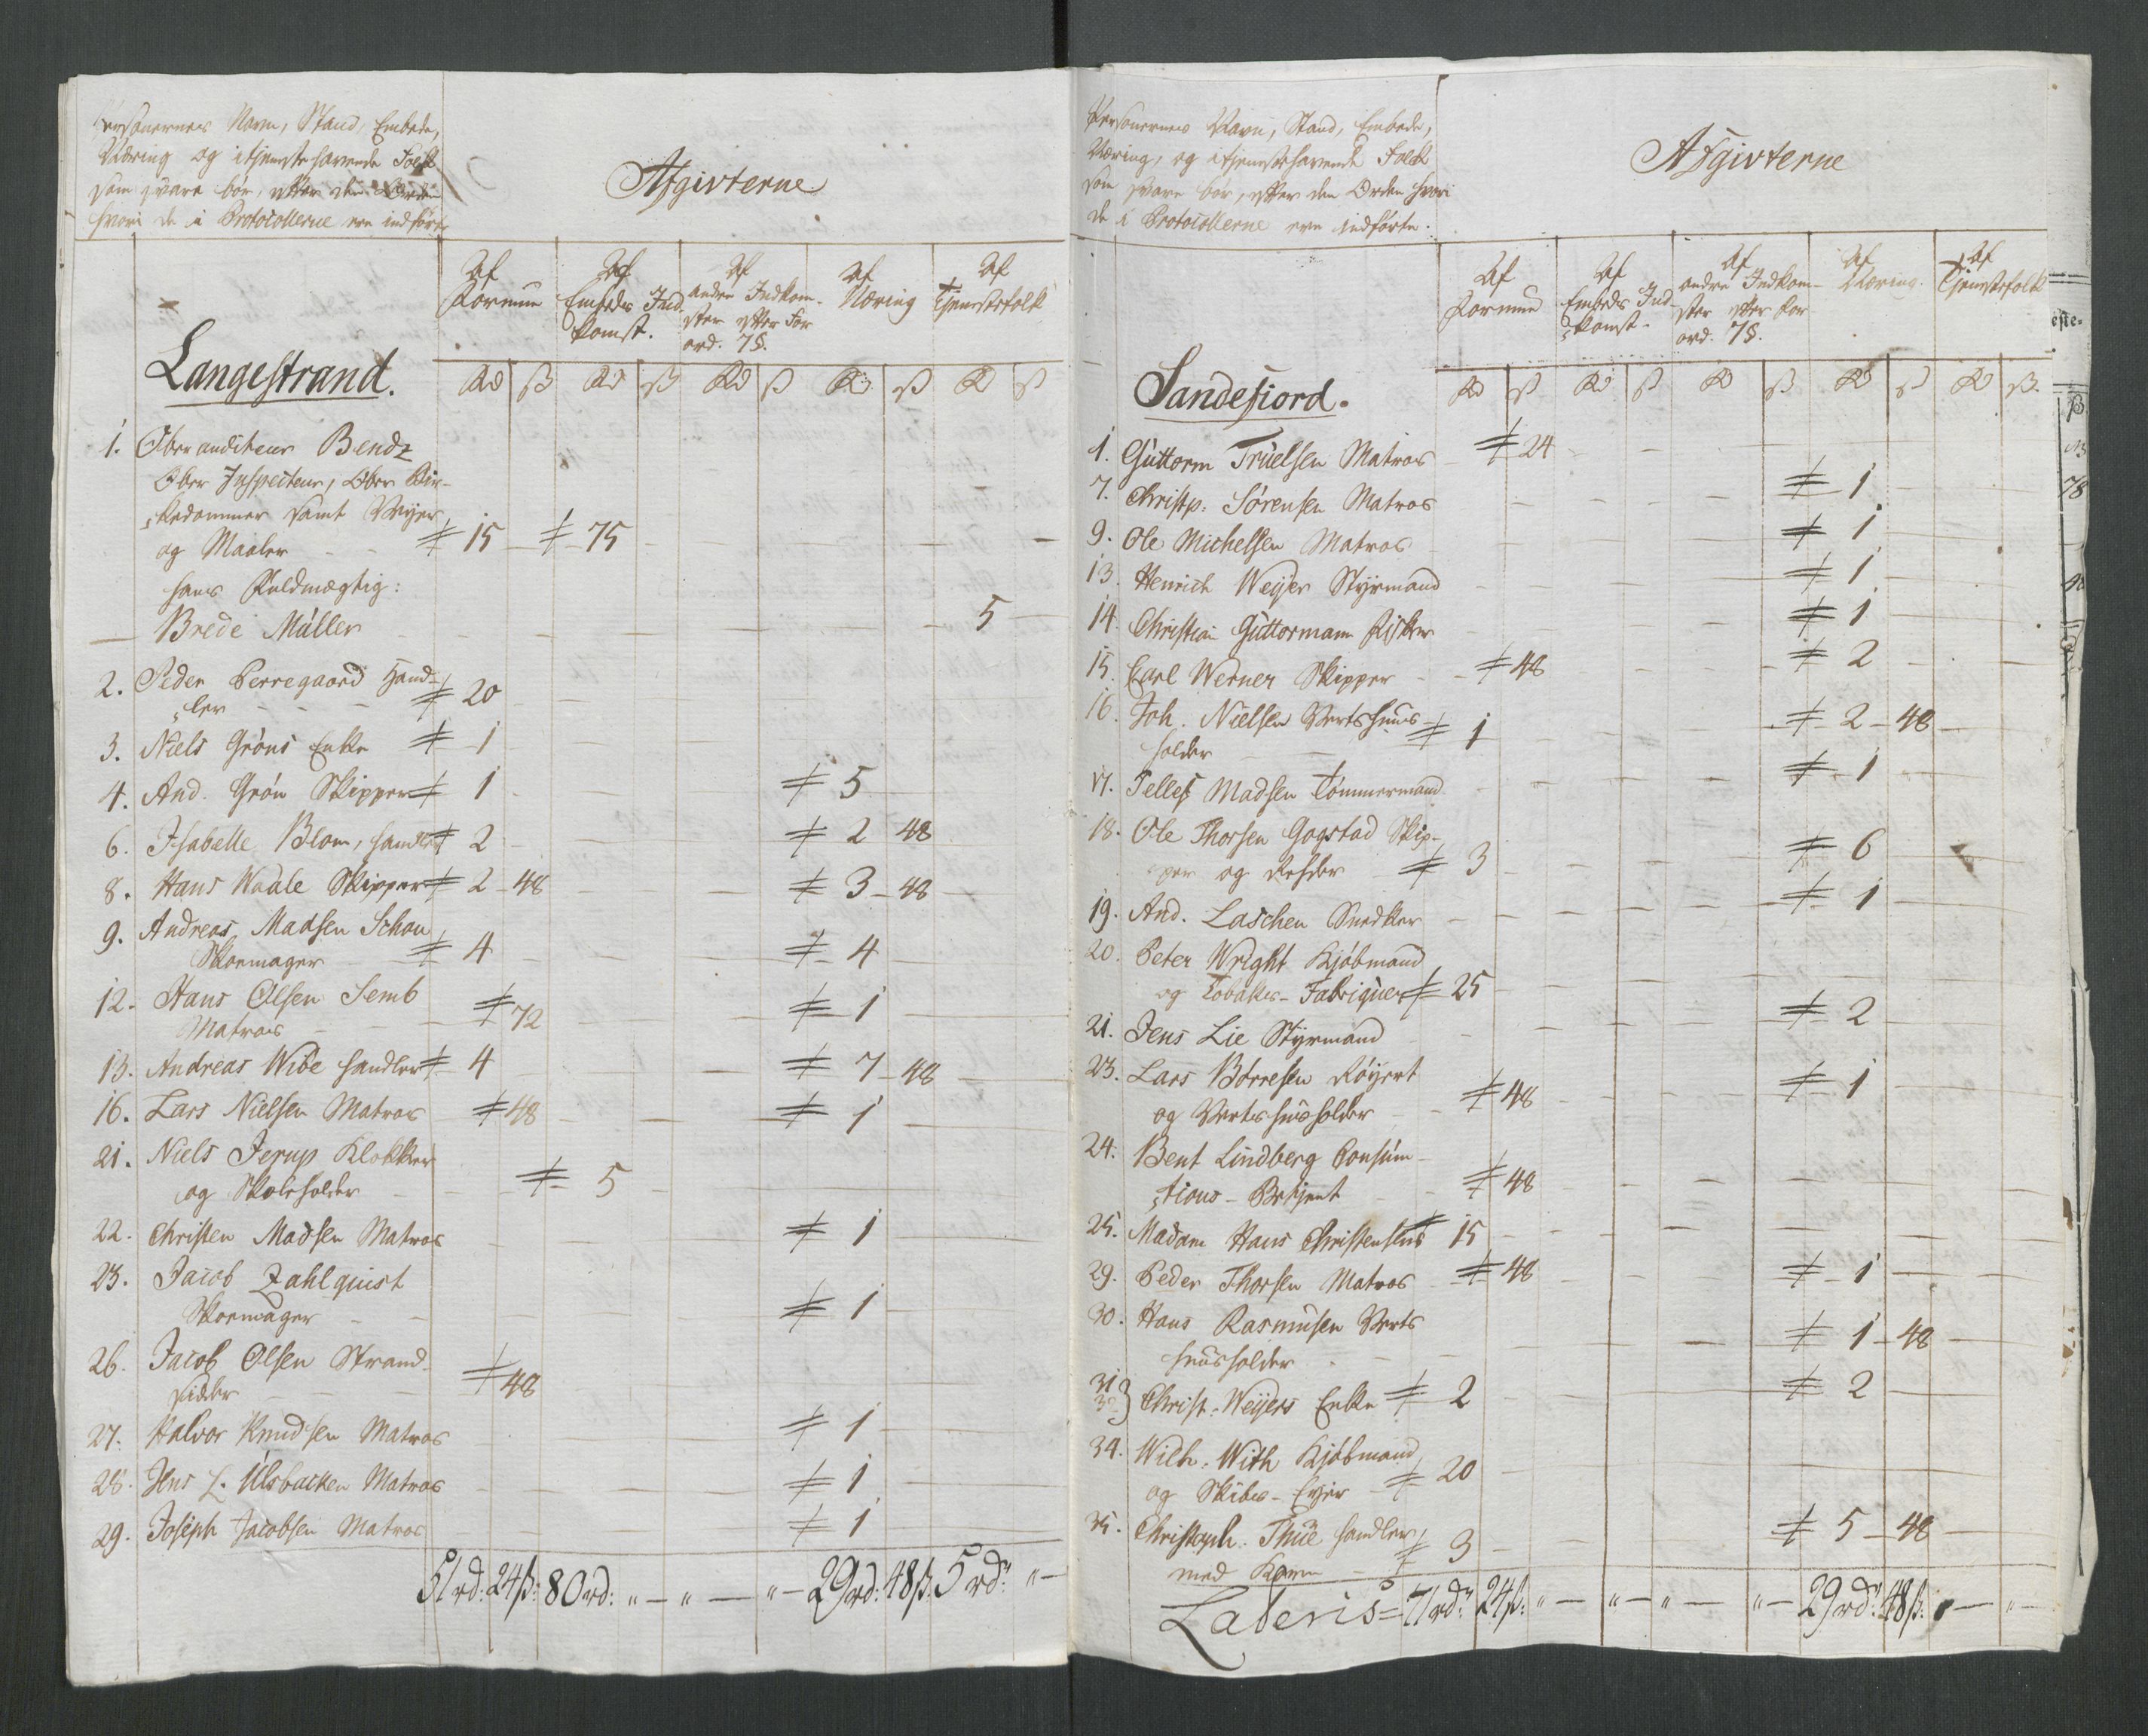 Personernes Navn, Stand, Embede,
Næring og itjenestehavende Folk
som svare bør, efter den Orden
hvori de i Protocollerne ere indførte
Afgivterne
Af Formue | Af Embeds Indkomst. | Af andre Indkomster efter For ord. 7§. | Af Næring | Af Tjenestefolk
Rd ß Rd ß Rd ß Rd ß Rd ß
Langestrand.
1. Ober auditeur Bendz
Ober Inspecteur, Ober Bir-
kedommer samt Vejer
og Maaler 15 75
hans Fuldmægtig:
Brede Müller 5
2. Peder Berregaard Hand-
ler 20
3. Niels Grøns Enke 1
4. And. Grøn Skipper 1 5
6. Isabelle Blom, handler 2 2 48
8. Hans Waale Skipper 2 - 48 3 - 48
9. Andreas Madsen Schou
Skoemager 4 4
12. Hans Olsen Semb
Matros 72 1
13. Andreas Wibe handler 4 7 - 48
16. Lars Nielsen Matros 48 1
21. Niels Jerup Klokker
og Skoleholder 5
22. Christen Madsen Matros 1
23. Jacob Zahlquist
Skoemager 1
26. Jacob Olsen Strand-
sidder 48
27. Halvor Knudsen Matros 1
28. Jens L. Ulsbacken Matros 1
29. Joseph Jacobsen Matros 1
51 rd: 24 ß: 80 rd: " — " — " — 29 rd: 48 ß: 5 rd: " —
Personernes Navn, Stand, Embede,
Næring, og itjenestehavende Folk
som svare bør, efter den Orden hvori
de i Protocollerne ere indførte.
Afgivterne
Af Formue | Af Embeds Indkomst. | Af andre Indkomster efter For ord. 7§. | Af Næring. | Af Tjenestefolk
Rd ß Rd ß Rd ß Rd ß Rd ß.
Sandefiord.
1. Guttorm Truelsen Matros 24
7. Christp: Sørensen Matros 1
9. Ole Michelsen Matros 1
13. Henrich Weyer Styrmand 1
14. Christian Guttormsen Fisker 1
15. Carl Werner Skipper 48 2
16. Joh. Nielsen Vertshuus-
holder 1 2 - 48
17. Tellef Madsen Tømmermand 1
18. Ole Thorsen Gogstad Skip-
per og Rehder 3 6
19. And. Laschen Snedker 1
20. Peter Wright Kjøbmand
og Tobaks-Fabriquer 25
21. Jens Lie Styrmand 2
23. Lars Børresen Røyert
og Vertshuusholder 48 1
24. Bent Lindberg Consum-
tions-Betjent 48
25. Madam Hans Christensens 15
29. Peder Thorsen Matros 48 1
30. Hans Rasmusen Verts
huusholder 1 - 48
31
32 } Christ. Weyers Enke 2 2
34. Wilh. With Kjøbmand
og Skibs-Eyer 20
35. Christoph. Thue handler
med Korn 3 5 - 48
Lateris = 71 rd: 24 ß: " — " — " — " — 29 rd: 48 ß: " — " —